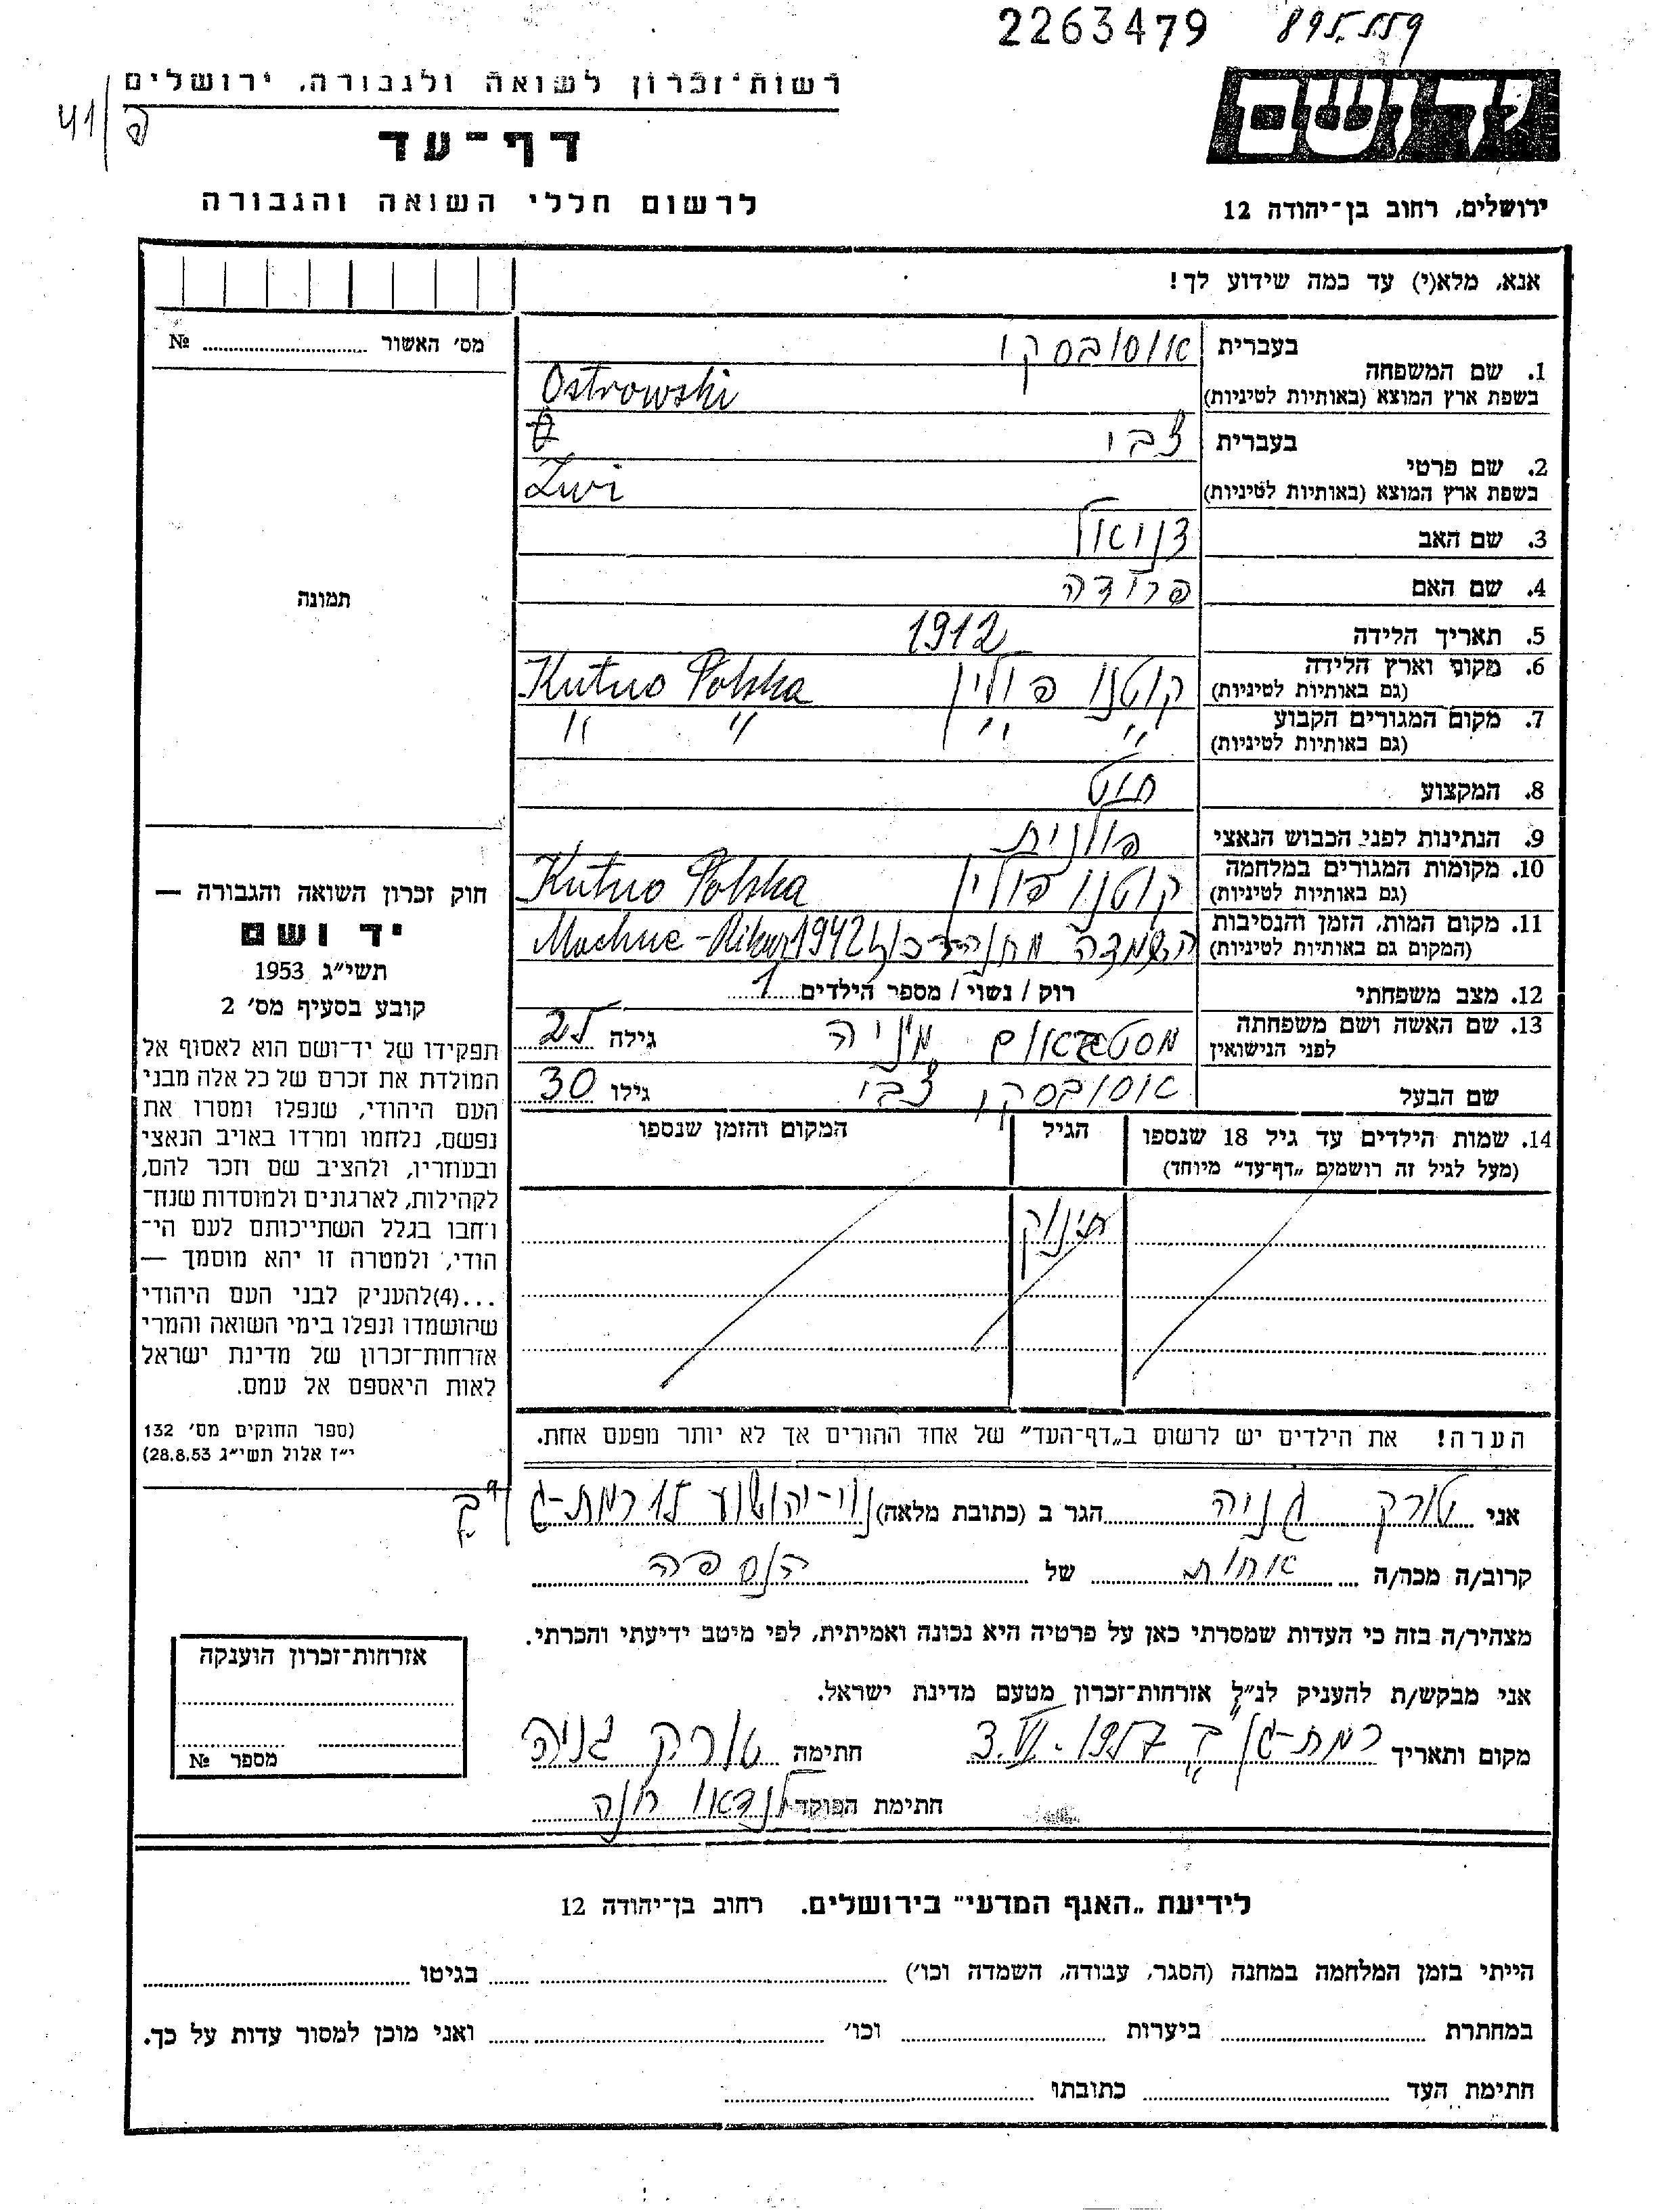 2263479
895.559
רשות־זכרון לשואה ולגבורה, ירושלים
41/פ
דף־עד
לרשום חללי השואה והגבורה
יד ושם
ירושלים, רחוב בן־יהודה 12
אנא, מלא(י) עד כמה שידוע לך!
מס׳ האשור ........ №
1. שם המשפחה
בעברית אוסובסקי
בשפת ארץ המוצא (באותיות לטיניות) Ostrowski
2. שם פרטי
בעברית צבי
בשפת ארץ המוצא (באותיות לטיניות) Zwi
3. שם האב דניאל
4. שם האם פרידה
5. תאריך הלידה 1912
6. מקום וארץ הלידה קוטנו פולין Kutno Polska
(גם באותיות לטיניות)
7. מקום המגורים הקבוע " " " "
(גם באותיות לטיניות)
8. המקצוע חיט
9. הנתינות לפני הכבוש הנאצי פולנית
10. מקומות המגורים במלחמה קוטנו פולין Kutno Polska
(גם באותיות לטיניות)
11. מקום המות, הזמן והנסיבות השמדה 1942
(המקום גם באותיות לטיניות)
12. מצב משפחתי רוק / נשוי / מספר הילדים 1
13. שם האשה ושם משפחתה מיניה גילה
לפני הנישואין
שם הבעל אוסובסקי צבי גילו 30
14. שמות הילדים עד גיל 18 שנספו
(מעל לגיל זה רושמים „דף־עד״ מיוחד)
הגיל
המקום והזמן שנספו
תינוק
הערה! את הילדים יש לרשום ב„דף־העד״ של אחד ההורים אך לא יותר מפעם אחת.
תמונה
חוק זכרון השואה והגבורה —
יד ושם
תשי״ג 1953
קובע בסעיף מס׳ 2
תפקידו של יד־ושם הוא לאסוף אל
המולדת את זכרם של כל אלה מבני
העם היהודי, שנפלו ומסרו את
נפשם, נלחמו ומרדו באויב הנאצי
ובעוזריו, ולהציב שם וזכר להם,
לקהילות, לארגונים ולמוסדות שנח־
רחבו בגלל השתייכותם לעם הי־
הודי, ולמטרה זו יהא מוסמך —
...(4)להעניק לבני העם היהודי
שהושמדו ונפלו בימי השואה והמרי
אזרחות־זכרון של מדינת ישראל
לאות היאספם אל עמם.
(ספר החוקים מס׳ 132
י״ז אלול תשי״ג 28.8.53)
אני טורק גניה הגר ב (כתובת מלאה) נוי־יהושע 15 רמת־ג
קרוב/ה מכר/ה אחות של הנספה
מצהיר/ה בזה כי העדות שמסרתי כאן על פרטיה היא נכונה ואמיתית, לפי מיטב ידיעתי והכרתי.
אני מבקש/ת להעניק לנ״ל אזרחות־זכרון מטעם מדינת ישראל.
מקום ותאריך רמת־גן 3.VI.1957 חתימה טורק גניה
חתימת הפוקד לנדאו חנה
אזרחות־זכרון הוענקה
מספר №
לידיעת „האגף המדעי״ בירושלים. רחוב בן־יהודה 12
הייתי בזמן המלחמה במחנה (הסגר, עבודה, השמדה וכו׳) ........ בגיטו ........
במחתרת ........ ביערות ........ וכו׳ ........ ואני מוכן למסור עדות על כך.
חתימת העד ........ כתובתו ........